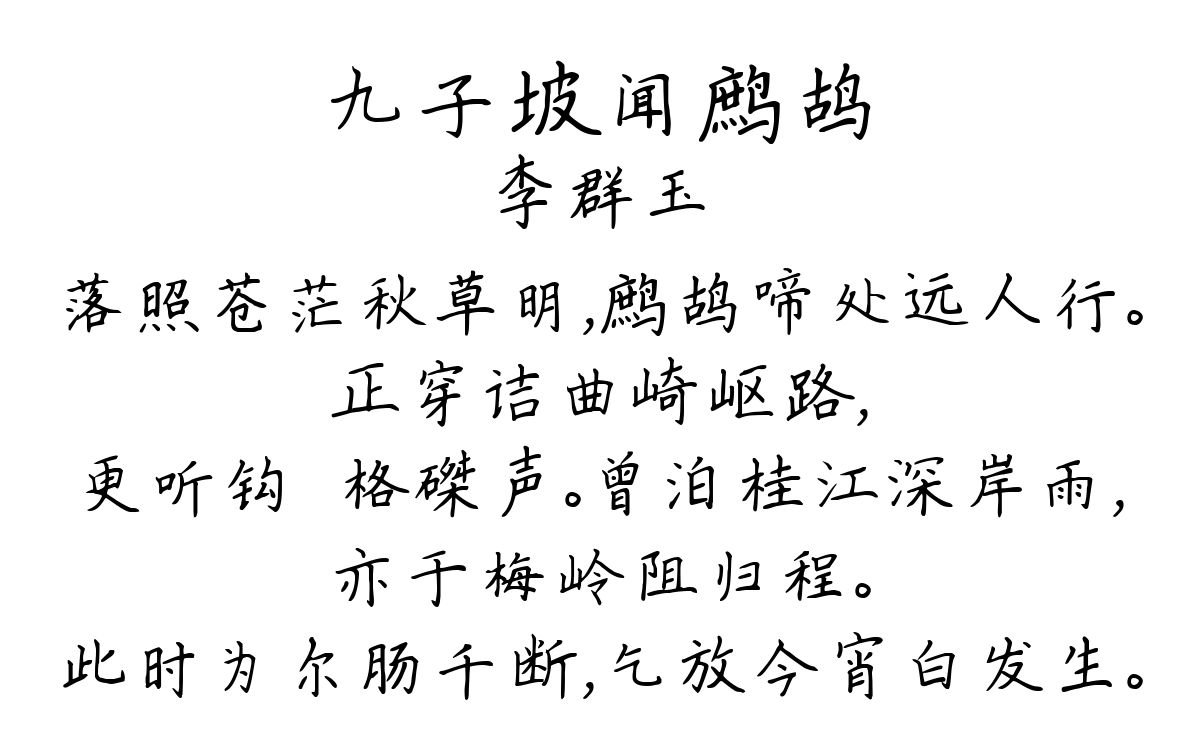 九子坡闻鹧鸪
李群玉
落照苍茫秋草明,鹧鸪啼处远人行。
正穿诘曲崎岖路,
更听钩 格磔声。曾泊桂江深岸雨,
亦于梅岭阻归程。
此时为尔肠千断,乞放今宵白发生。